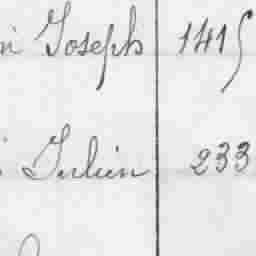 Joseph 1415
Julien 233